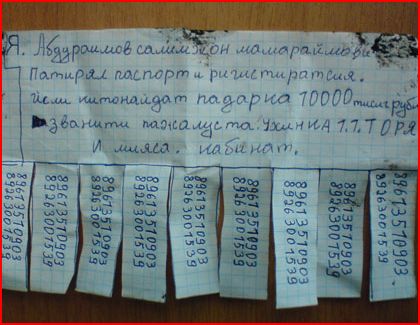 Я. Абдураимов саммэжон мамараймови
Патирял паспорт и ригистиратсия.
исли китонайдат падарка 10000 тисич рубл
званити пажалуста. Ухинка Т.Т. ТОРЯ
И мияса. кабинат.
89613510903
89263001539
89613510903
89263001539
89613510903
89263001539
89613510903
89263001539
89613510903
89263001539
89613510903
89263001539
89613510903
89263001539
89613510903
89263001539
89613510903
89263001539